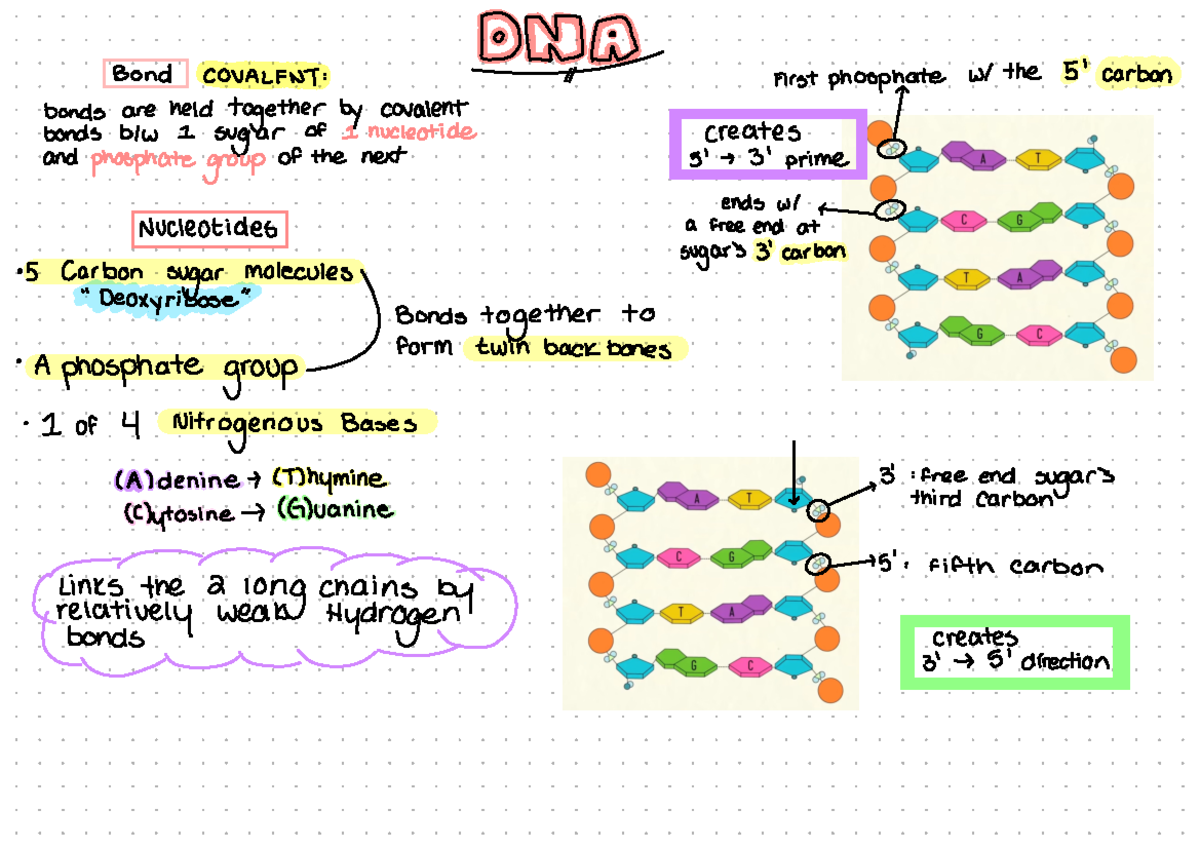 DNA
Bond COVALENT:
bonds are held together by covalent
bonds b/w 1 sugar of 1 nucleotide
and phosphate group of the next
Nucleotides
•5 Carbon sugar molecules
"Deoxyribose"
• A phosphate group
Bonds together to
form twin back bones
• 1 of 4 Nitrogenous Bases
(A)denine → (T)hymine
(C)ytosine → (G)uanine
Links the 2 long chains by
relatively weak Hydrogen
bonds
First phosphate w/ the 5' carbon
creates
5' → 3' prime
ends w/
a free end at
sugar's 3' carbon
A T
C G
T A
G C
3' : free end sugar's
third carbon
5' : fifth carbon
creates
3' → 5' direction
A T
C G
T A
G C